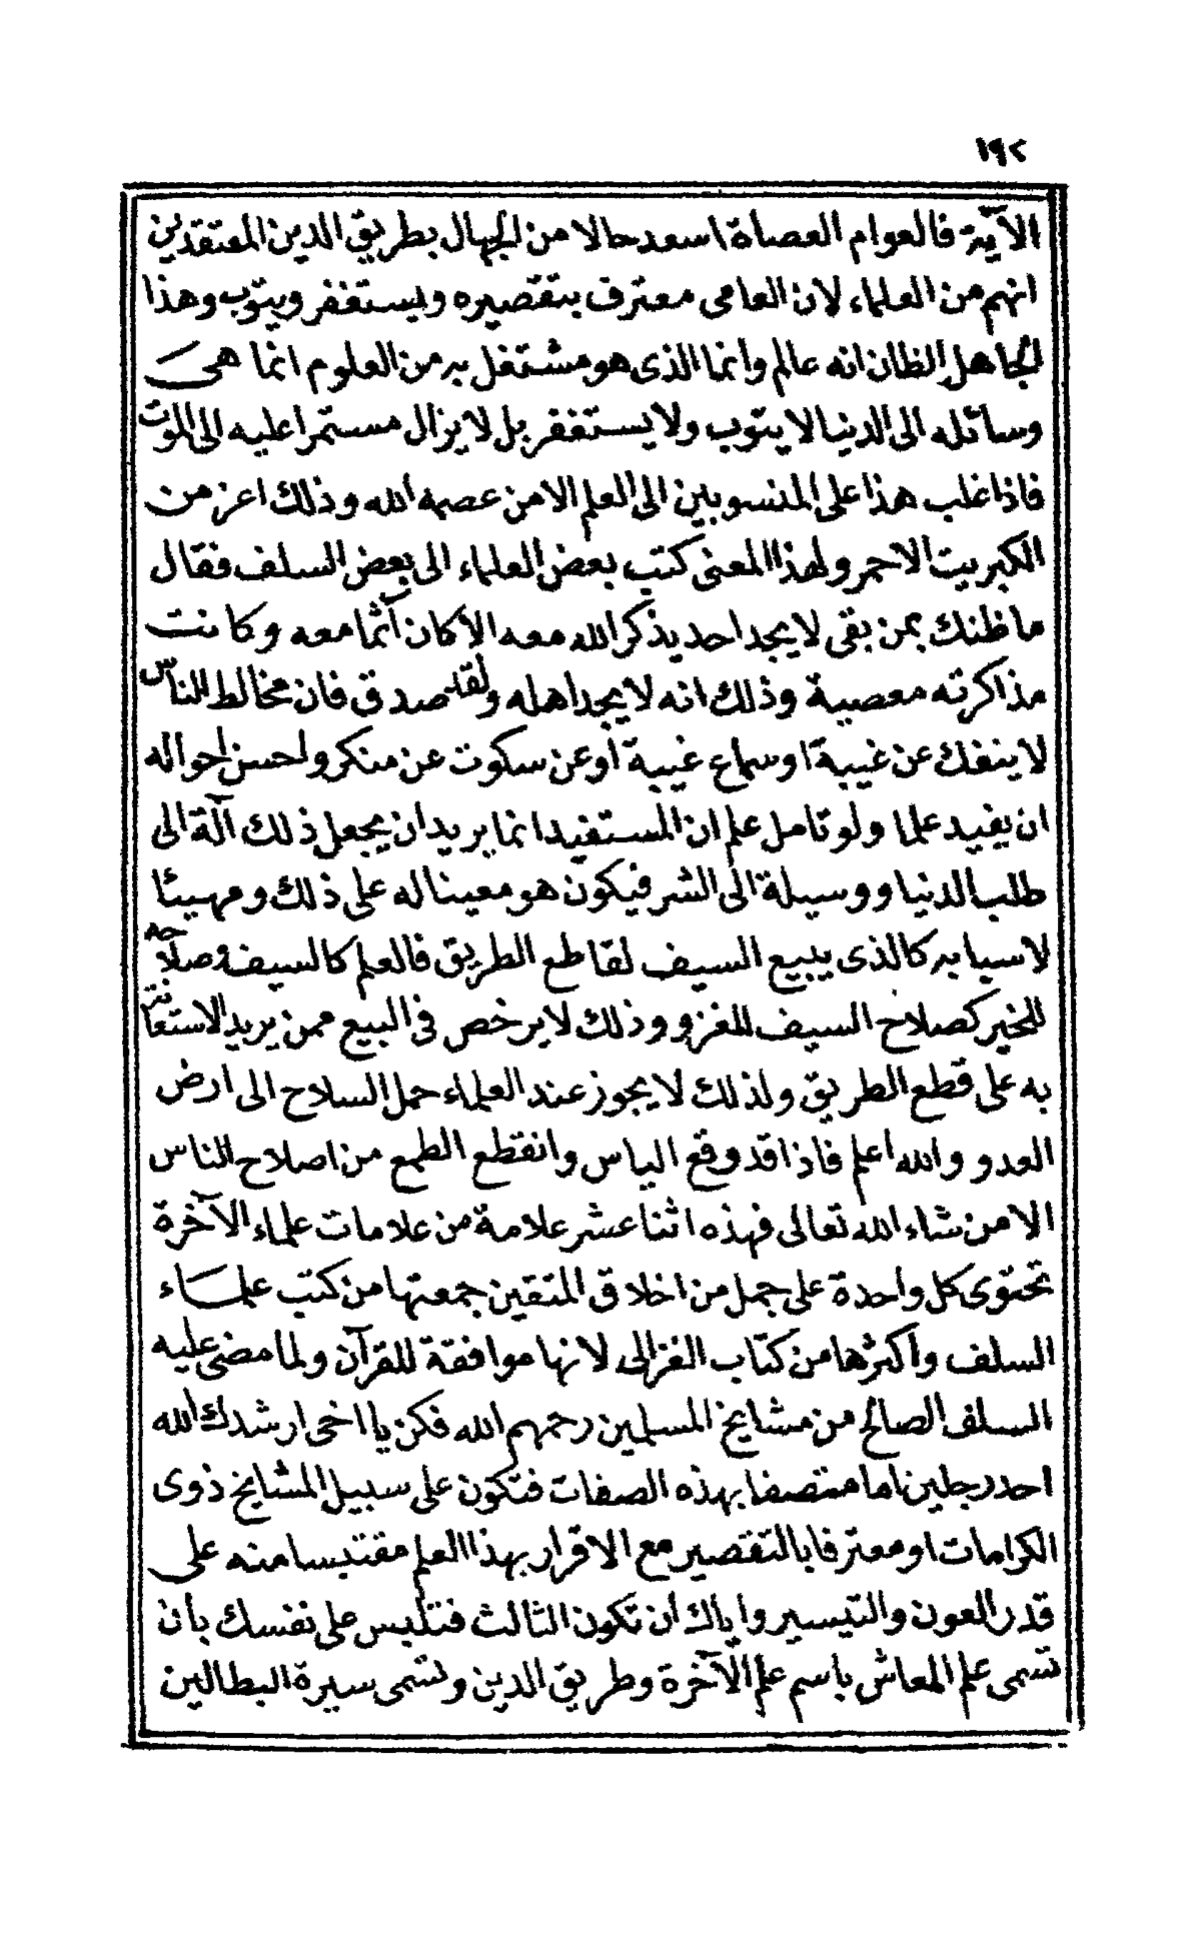 ١٩٢
الآية فالعوام العصاة اسعد حالا من الجهال بطريق الدين المعتقدين
انهم من العلماء لان العامى معترف بتقصيره ويستغفر ويتوب وهذا
الجاهل الظان انه عالم وانما الذى هو مشتغل به من العلوم انما هى
وسائله الى الدنيا لا يتوب ولا يستغفر بل لا يزال مستمرا عليه الى الموت
فاذا غلب هذا على المنسوبين الى العلم الا من عصمه الله وذلك اعز من
الكبريت الاحمر ولهذا المعنى كتب بعض العلماء الى بعض السلف فقال
ما ظنك بمن بقى لا يجد احد يذكر الله معه الا كان آثما معه وكانت
مذاكرته معصية وذلك انه لا يجد اهله ولقد صدق فان مخالط الناس
لا ينفك عن غيبة او سماع غيبة او عن سكوت عن منكر واحسن احواله
ان يفيد علما ولو تامل علم ان المستفيد انما يريد ان يجعل ذلك آلة الى
طلب الدنيا ووسيلة الى الشر فيكون هو معينا له على ذلك ومهيئا
لاسبابه كالذى يبيع السيف لقاطع الطريق فالعلم كالسيف وصلاحه
للخير كصلاح السيف للغزو وذلك لا يرخص فى البيع ممن يريد الاستعانة
به على قطع الطريق ولذلك لا يجوز عند العلماء حمل السلاح الى ارض
العدو والله اعلم فاذا قد وقع الياس وانقطع الطمع من اصلاح الناس
الا من شاء الله تعالى فهذه اثنا عشر علامة من علامات علماء الآخرة
تحتوى كل واحدة على جمل من اخلاق المتقين جمعتها من كتب علماء
السلف واكثرها من كتاب الغزالى لانها موافقة للقرآن ولما مضى عليه
السلف الصالح من مشايخ المسلمين رحمهم الله فكن يا اخى ارشدك الله
احد رجلين اما متصفا بهذه الصفات فتكون على سبيل المشايخ ذوى
الكرامات او معترفا بالتقصير مع الاقرار بهذا العلم مقتبسا منه على
قدر العون والتيسير واياك ان تكون الثالث فتلبس على نفسك بأن
تسمى علم المعاش باسم علم الآخرة وطريق الدين وتسمى سيرة البطالين